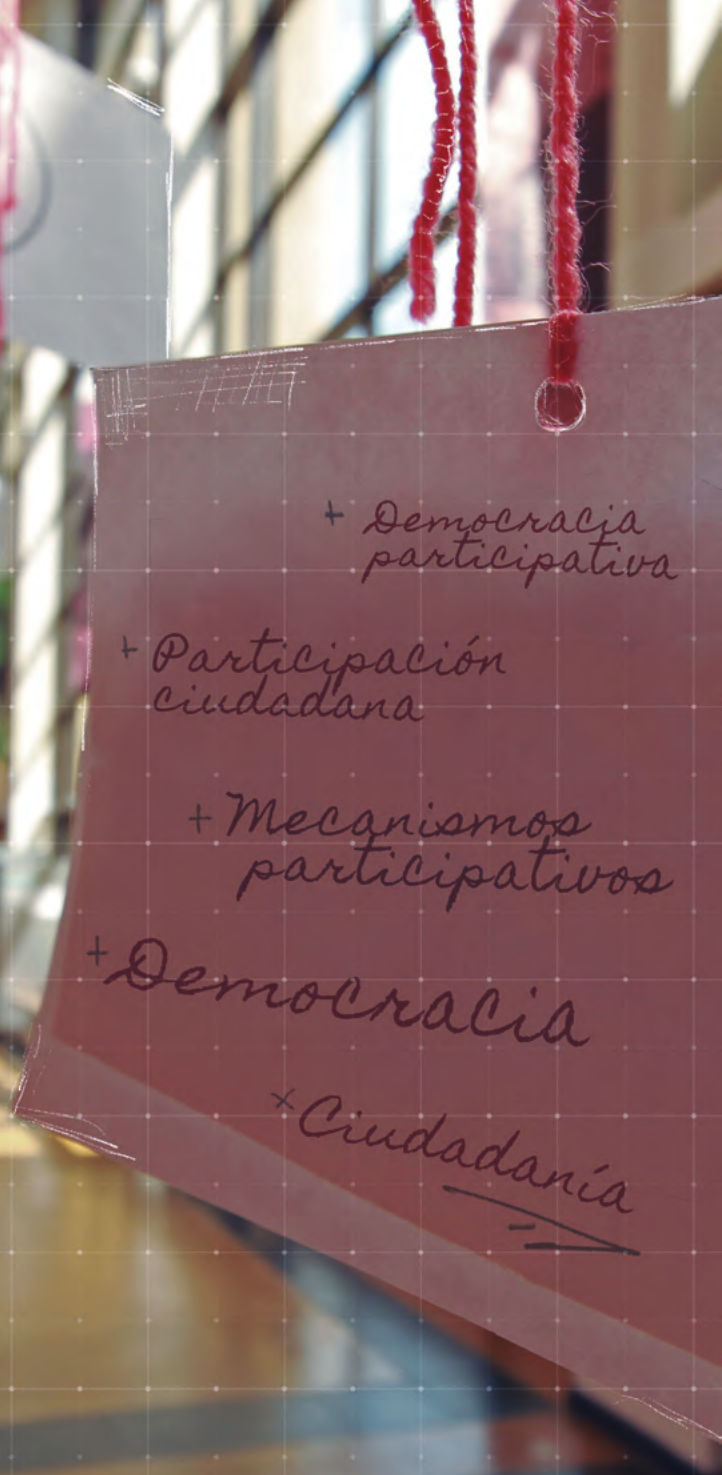 + Democracia
participativa
+ Participación
ciudadana
+ Mecanismos
participativos
+ Democracia
x Ciudadanía